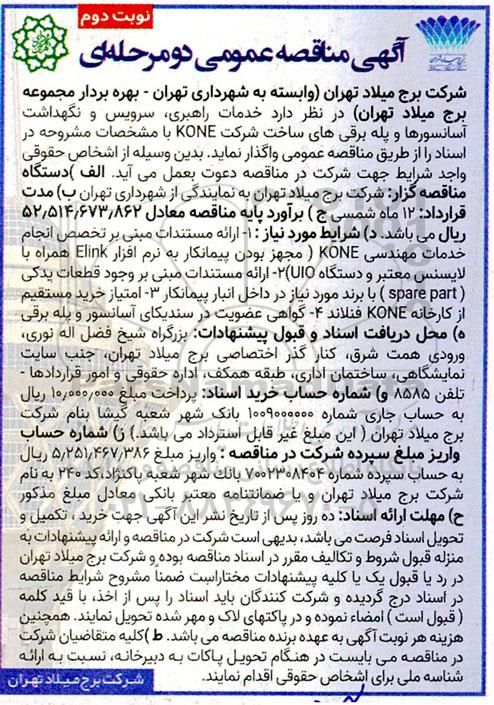 نوبت دوم
آگهی مناقصه عمومی دو مرحله‌ای
شرکت برج میلاد تهران (وابسته به شهرداری تهران - بهره بردار مجموعه
برج میلاد تهران) در نظر دارد خدمات راهبری، سرویس و نگهداشت
آسانسورها و پله برقی های ساخت شرکت KONE با مشخصات مشروحه در
اسناد را از طریق مناقصه عمومی واگذار نماید. بدین وسیله از اشخاص حقوقی
واجد شرایط جهت شرکت در مناقصه دعوت بعمل می آید. الف )دستگاه
مناقصه گزار: شرکت برج میلاد تهران به نمایندگی از شهرداری تهران ب) مدت
قرارداد: ۱۲ ماه شمسی ج ) برآورد پایه مناقصه معادل ۵۲,۵۱۴,۶۷۳,۸۶۲
ریال می باشد. د) شرایط مورد نیاز : ۱- ارائه مستندات مبنی بر تخصص انجام
خدمات مهندسی KONE ( مجهز بودن پیمانکار به نرم افزار Elink همراه با
لایسنس معتبر و دستگاه UIO)۲- ارائه مستندات مبنی بر وجود قطعات یدکی
( spare part ) با برند مورد نیاز در داخل انبار پیمانکار ۳- امتیاز خرید مستقیم
از کارخانه KONE فنلاند ۴- گواهی عضویت در سندیکای آسانسور و پله برقی
ه) محل دریافت اسناد و قبول پیشنهادات: بزرگراه شیخ فضل اله نوری،
ورودی همت شرق، کنار گذر اختصاصی برج میلاد تهران، جنب سایت
نمایشگاهی، ساختمان اداری، طبقه همکف، اداره حقوقی و امور قراردادها -
تلفن ۸۵۸۵ و) شماره حساب خرید اسناد: پرداخت مبلغ ۱۰,۰۰۰,۰۰۰ ریال
به حساب جاری شماره ۱۰۰۹۰۰۰۰۰۰ بانک شهر شعبه گیشا بنام شرکت
برج میلاد تهران ( این مبلغ غیر قابل استرداد می باشد.) ز) شماره حساب
واریز مبلغ سپرده شرکت در مناقصه : واریز مبلغ ۵,۲۵۱,۴۶۷,۳۸۶ ریال
به حساب سپرده شماره ۷۰۰۲۳۰۸۴۰۴ بانك شهر شعبه باکنژاد،کد ۲۴۰ به نام
شرکت برج میلاد تهران و یا ضمانتنامه معتبر بانکی معادل مبلغ مذکور
ح) مهلت ارائه اسناد: ده روز پس از تاریخ نشر این آگهی جهت خرید ، تکمیل و
تحویل اسناد فرصت می باشد، بدیهی است شرکت در مناقصه و ارائه پیشنهادات به
منزله قبول شروط و تکالیف مقرر در اسناد مناقصه بوده و شرکت برج میلاد تهران
در رد یا قبول یک یا کلیه پیشنهادات مختاراست ضمناً مشروح شرایط مناقصه
در اسناد درج گردیده و شرکت کنندگان باید اسناد را پس از اخذ، با قید کلمه
( قبول است ) امضاء نموده و در پاکتهای لاک و مهر شده تحویل نمایند. همچنین
هزینه هر نوبت آگهی به عهده برنده مناقصه می باشد. ط )کلیه متقاضیان شرکت
در مناقصه می بایست در هنگام تحویل پاکات به دبیرخانه، نسبت به ارائه
شناسه ملی برای اشخاص حقوقی اقدام نمایند.
شرکت برج میلاد تهران